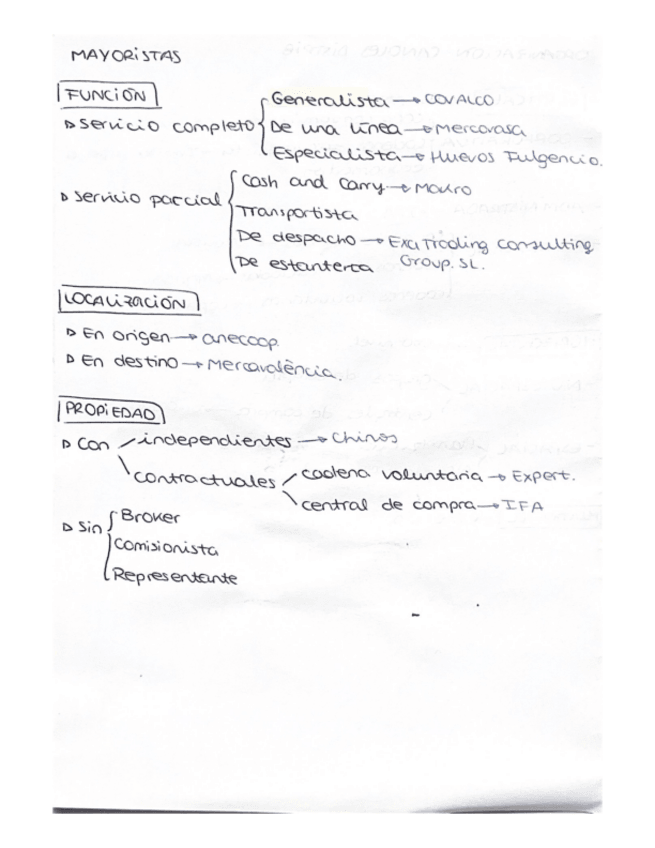 MAYORISTAS
FUNCIÓN
Servicio completo
Generalista → COVALCO
De una línea → Mercovasa
Especialista → Huevos Fulgencio.
Servicio parcial
Cash and Carry → Makro
Transportista
De despacho → Exa Trading consulting
Group. SL.
De estantería
LOCALIZACIÓN
En origen → anecoop.
En destino → Mercavalència.
PROPIEDAD
Con
independientes → Chinos
contractuales
cadena voluntaria → Expert.
central de compra → IFA
Sin
Broker
Comisionista
Representante